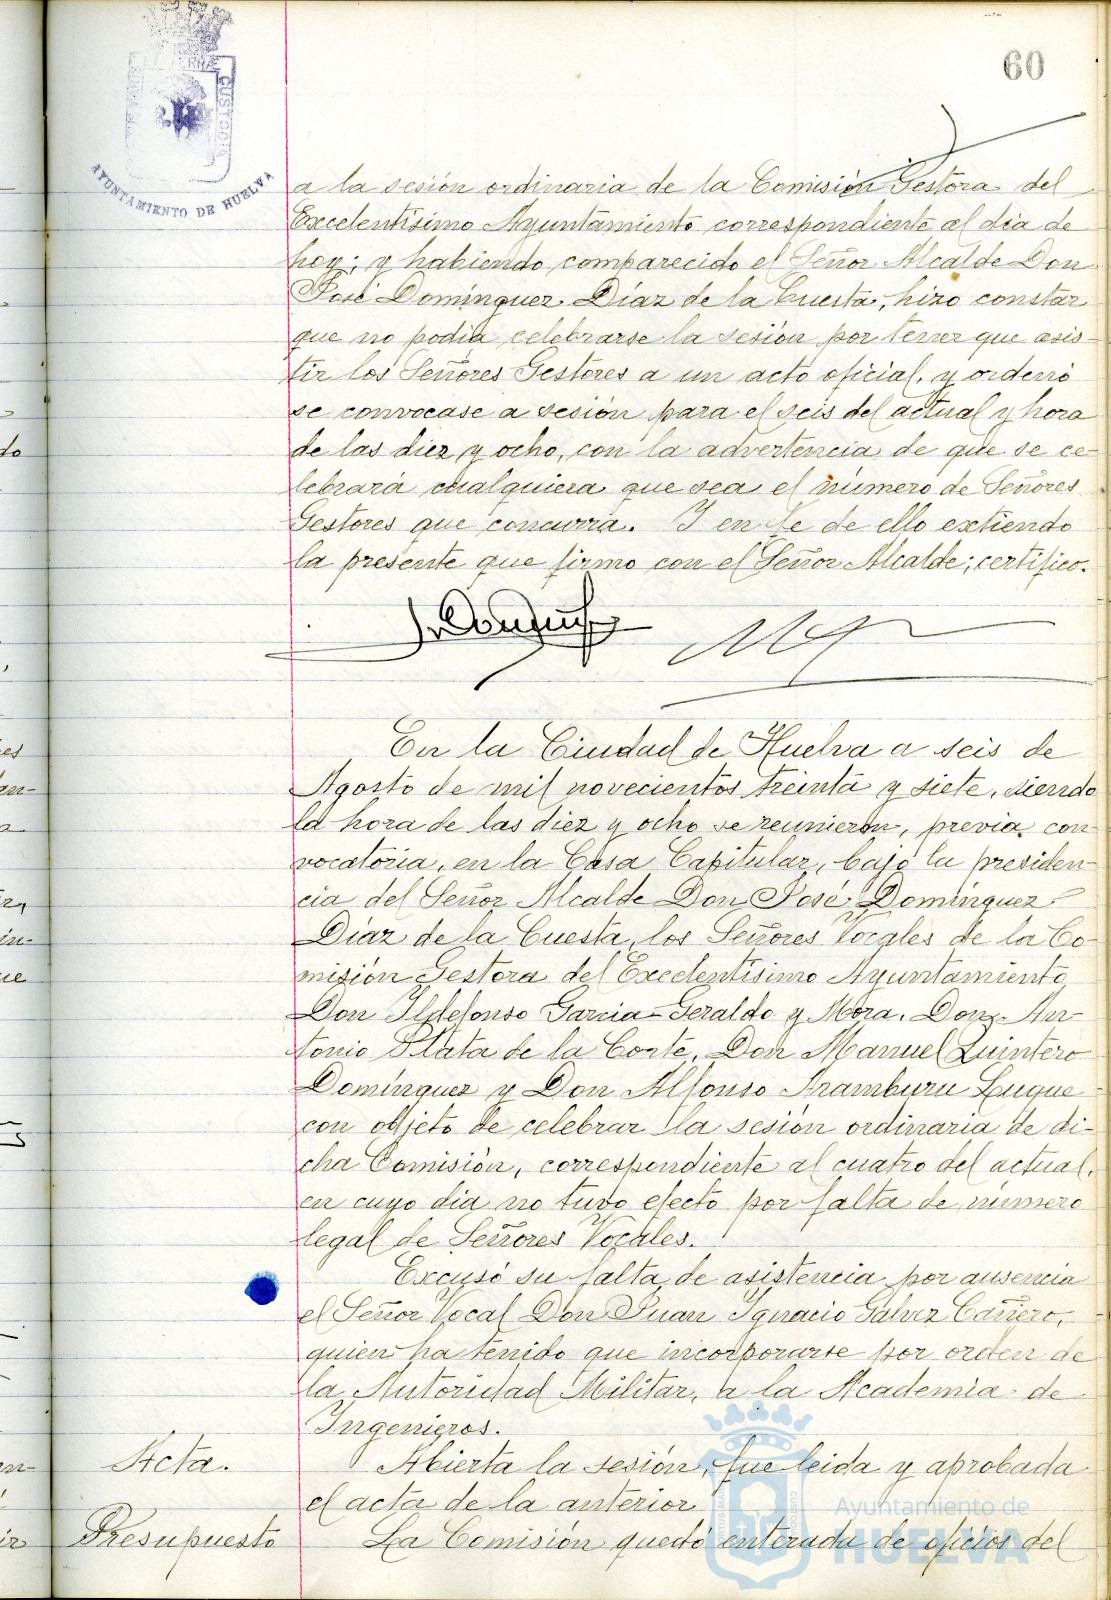 60
AYUNTAMIENTO DE HUELVA
a la sesión ordinaria de la Comisión Gestora del
Excelentísimo Ayuntamiento correspondiente al día de
hoy; y habiendo comparecido el Señor Alcalde Don
José Domínguez Díaz de la Cuesta, hizo constar
que no podía celebrarse la sesión por tener que asis-
tir los Señores Gestores a un acto oficial, y ordenó
se convocase a sesión para el seis del actual y hora
de las diez y ocho, con la advertencia de que se ce-
lebrará cualquiera que sea el número de Señores
Gestores que concurra. Y en fe de ello extiendo
la presente que firmo con el Señor Alcalde; certifico.
En la Ciudad de Huelva a seis de
Agosto de mil novecientos treinta y siete, siendo
la hora de las diez y ocho se reunieron, previa con-
vocatoria, en la Casa Capitular, bajo la presiden-
cia del Señor Alcalde Don José Domínguez
Díaz de la Cuesta, los Señores Vocales de la Co-
misión Gestora del Excelentísimo Ayuntamiento
Don Ildefonso García-Geraldo y Mora, Don An-
tonio Plata de la Corte, Don Manuel Quintero
Domínguez y Don Alfonso Aramburu Luque
con objeto de celebrar la sesión ordinaria de di-
cha Comisión, correspondiente al cuatro del actual,
en cuyo día no tuvo efecto por falta de número
legal de Señores Vocales.
Excusó su falta de asistencia por ausencia
el Señor Vocal Don Juan Ignacio Galvez Cañero,
quien ha tenido que incorporarse por orden de
la Autoridad Militar, a la Academia de
Ingenieros.
Acta. Abierta la sesión, fue leida y aprobada
el acta de la anterior
Presupuesto La Comisión quedó enterada de oficios del
Ayuntamiento de
HUELVA